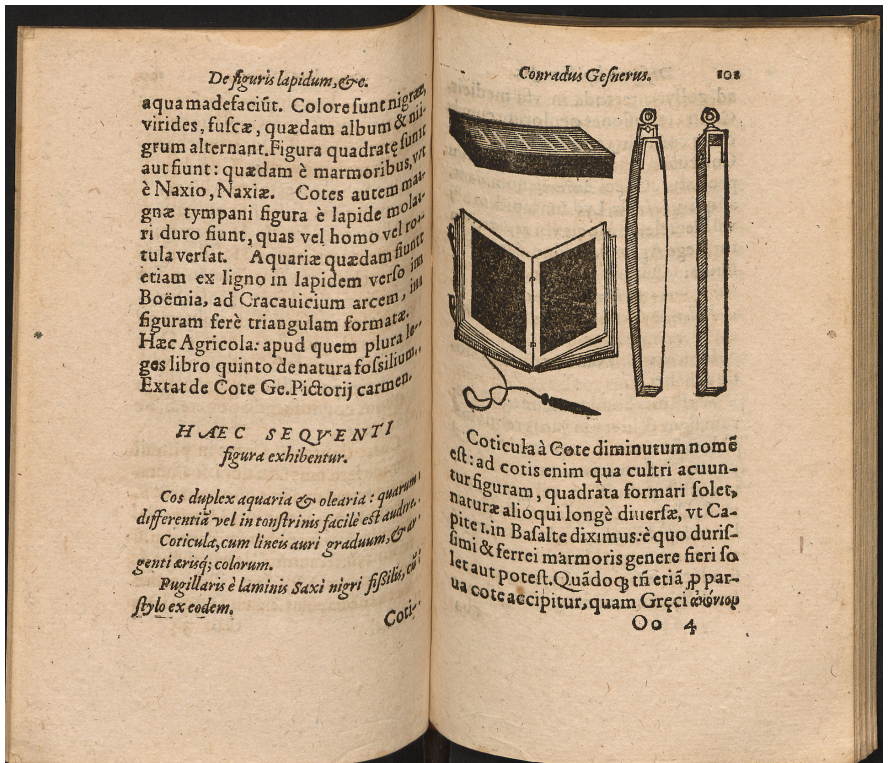 De figuris lapidum, &c.
aqua madefaciūt. Colore sunt nigræ,
virides, fuscæ, quædam album & ni-
grum alternant. Figura quadratę sunt
aut fiunt: quædam è marmoribus, vt
è Naxio, Naxiæ. Cotes autem ma-
gnæ tympani figura è lapide mola-
ri duro fiunt, quas vel homo vel ro-
tula versat. Aquariæ quædam fiunt
etiam ex ligno in lapidem verso in
Boëmia, ad Cracauicium arcem, in
figuram ferè triangulam formatæ.
Hæc Agricola: apud quem plura le-
ges libro quinto de natura fossilium.
Extat de Cote Ge. Pictorij carmen.
HÆC SEQVENTI
figura exhibentur.
Cos duplex aquaria & olearia: quarum
differentiā vel in tonstrinis facilè est audire.
Coticula, cum lineis auri graduum, & ar
genti ærisq; colorum.
Pugillaris è laminis Saxi nigri fissilis, cū
stylo ex eodem.
Coti-
Conradus Gesnerus. 102
Coticula à Cote diminutum nomē
est: ad cotis enim qua cultri acuun-
tur figuram, quadrata formari solet,
naturæ alioqui longè diuersæ, vt Ca-
pite 1. in Basalte diximus: è quo duris-
simi & ferrei marmoris genere fieri so
let aut potest. Quādoq; tñ etiā ꝓ par-
ua cote accipitur, quam Gręci ἀκόνιον
Oo 4